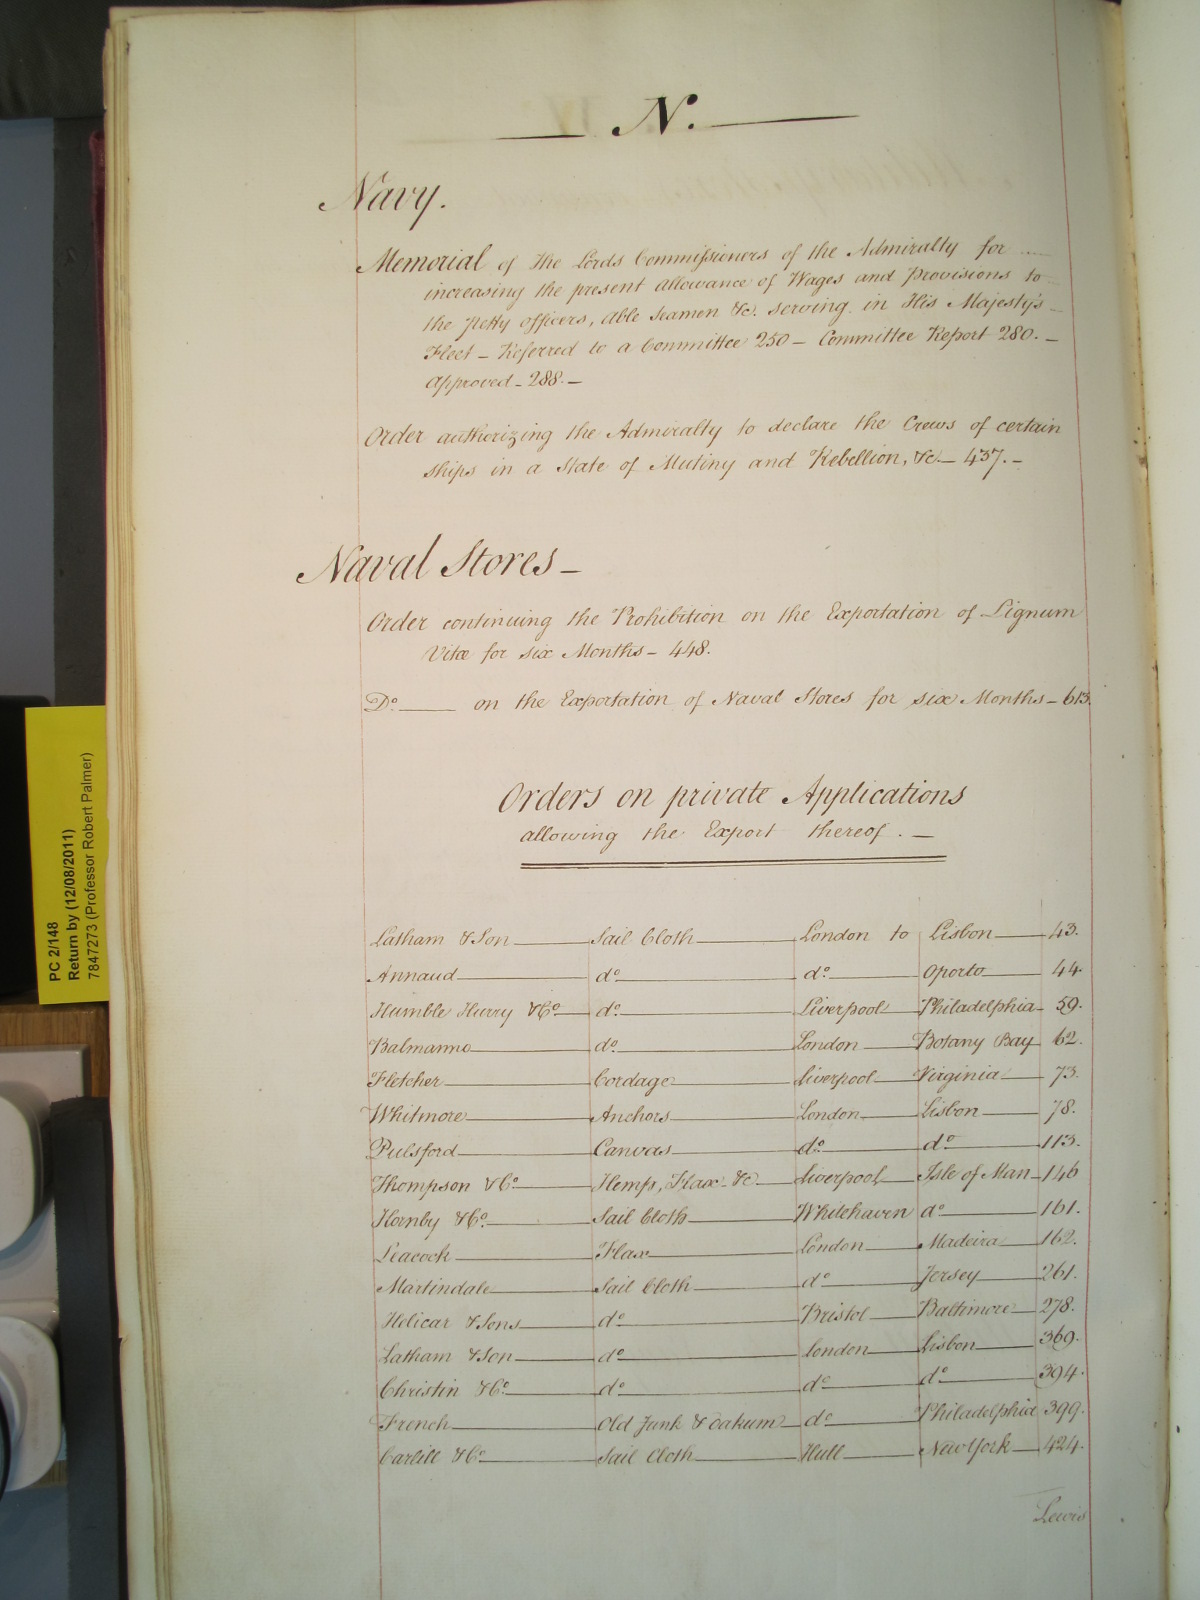 N.
Navy.
Memorial of The Lords Commissioners of the Admiralty for
increasing the present allowance of Wages and Provisions to
the petty officers, able seamen &c. serving in His Majesty's
Fleet – Referred to a Committee 250 – Committee Report 280. –
approved – 288. –
Order authorizing the Admiralty to declare the Crews of certain
ships in a State of Mutiny and Rebellion, &c. – 437. –
Naval Stores –
Order continuing the Prohibition on the Exportation of Lignum
Vitæ for six Months – 448.
Do. on the Exportation of Naval Stores for six Months – 613.
Orders on private Applications
allowing the Export thereof. –
Latham & Son Sail Cloth London to Lisbon 43.
Annaud do. do. Oporto 44.
Humble Hurry & Co. do. Liverpool Philadelphia 59.
Balmanno do. London Botany Bay 62.
Fletcher Cordage Liverpool Virginia 73.
Whitmore Anchors London Lisbon 78.
Pulsford Canvas do. do. 113.
Thompson & Co. Hemp, Flax &c Liverpool Isle of Man 146
Hornby & Co. Sail Cloth Whitehaven do. 161.
Leacock Flax London Madeira 162.
Martindale Sail Cloth do. Jersey 261.
Helicar & Sons do. Bristol Baltimore 278.
Latham & Son do. London Lisbon 369.
Christin & Co. do. do. do. 394.
French Old Junk & oakum do. Philadelphia 399.
Carlill & Co. Sail Cloth Hull New York 424.
Lewis
PC 2/148
Return by (12/08/2011)
7847273 (Professor Robert Palmer)